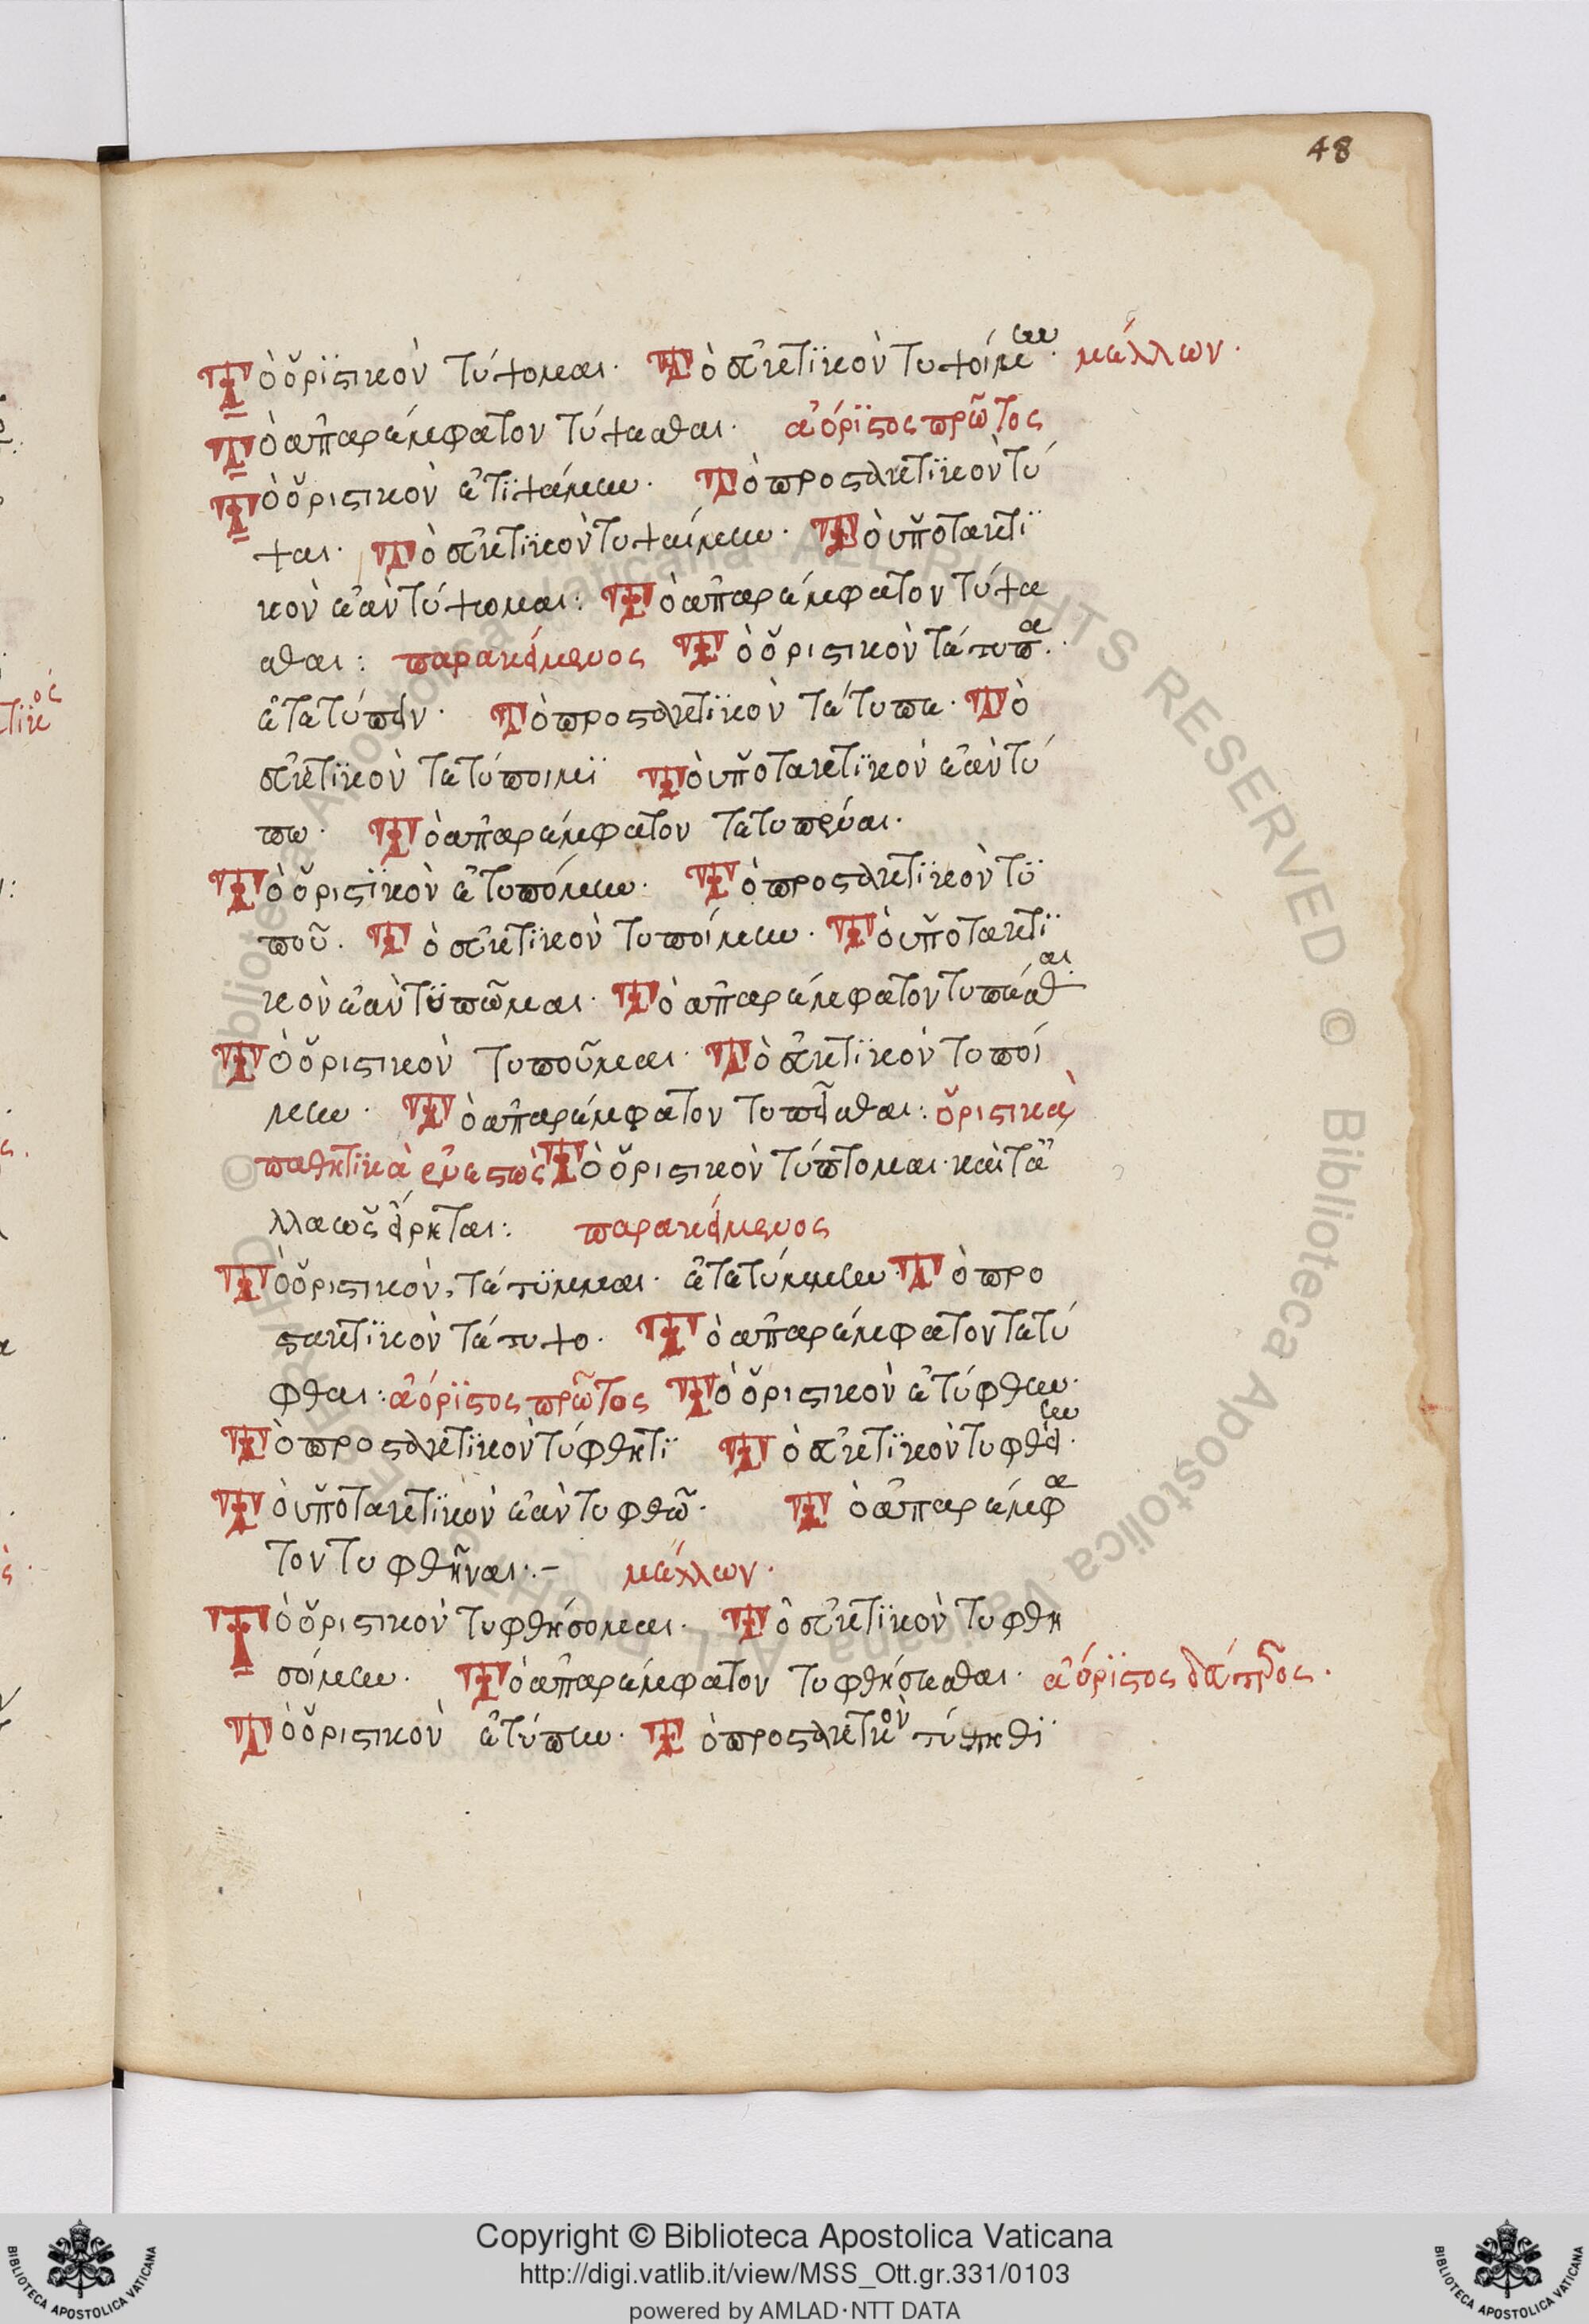 48
Τὸ ὁριστικὸν τύψομαι· Τὸ εὐκτικὸν τυψοίμην· μέλλων·
Τὸ ἀπαρέμφατον τύψεσθαι· ἀόριστος πρῶτος
Τὸ ὁριστικὸν ἐτιψάμην· Τὸ προστακτικὸν τύ
ψαι· Τὸ εὐκτικὸν τυψαίμην· Τὸ ὑποτακτι
κὸν ἐὰν τύψωμαι: Τὸ ἀπαρέμφατον τύψα
σθαι: παρακείμενος Τὸ ὁριστικὸν τέτυπα·
ἐτετύπειν· Τὸ προστακτικὸν τέτυπε· Τὸ
εὐκτικὸν τετύποιμι Τὸ ὑποτακτικὸν ἐὰν τύ
πω· Τὸ ἀπαρέμφατον τετυπέναι·
Τὸ ὁριστικὸν ἐτυπόμην· Τὸ προστακτικὸν τυ
ποῦ· Τὸ εὐκτικὸν τυποίμην· Τὸ ὑποτακτι
κὸν ἐὰν τυπῶμαι· Τὸ ἀπαρέμφατον τυπέσθαι
Τὸ ὁριστικὸν τυποῦμαι· Τὸ εὐκτικὸν τυποί
μην· Τὸ ἀπαρέμφατον τυπεῖσθαι: ὁριστικὰ
παθητικὰ ἐνεστὼς Τὸ ὁριστικὸν τύπτομαι· καὶ τὰ ἄ
λλα ὡς εἴρηται: παρακείμενος
Τὸ ὁριστικὸν, τέτυμμαι· ἐτετύμμην· Τὸ προ
στακτικὸν τέτυψο· Τὸ ἀπαρέμφατον τετύ
φθαι: ἀόριστος πρῶτος Τὸ ὁριστικὸν ἐτύφθην·
Τὸ προστακτικὸν τύφθητι Τὸ εὐκτικὸν τυφθείην·
Τὸ ὑποτακτικὸν ἐὰν τυφθῶ· Τὸ ἀπαρέμφα
τον τυφθῆναι:– μέλλων·
Τὸ ὁριστικὸν τυφθήσομαι· Τὸ εὐκτικὸν τυφθη
σοίμην· Τὸ ἀπαρέμφατον τυφθήσεσθαι· ἀόριστος δεύτερος·
Τὸ ὁριστικὸν ἐτύπην· Τὸ προστακτικὸν τύπηθι
© Biblioteca Apostolica Vaticana ALL RIGHTS RESERVED © Biblioteca Apostolica Vaticana ALL RIGHTS RESERVED
BIBLIOTECA APOSTOLICA VATICANA
Copyright © Biblioteca Apostolica Vaticana
http://digi.vatlib.it/view/MSS_Ott.gr.331/0103
powered by AMLAD·NTT DATA
BIBLIOTECA APOSTOLICA VATICANA